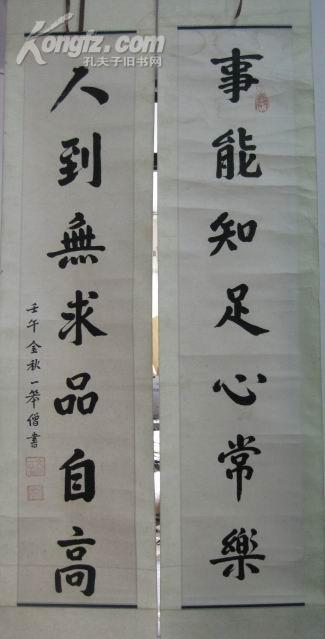 事能知足心常樂
人到無求品自高
壬午金秋一笨僧書
Kongfz.com
孔夫子旧书网